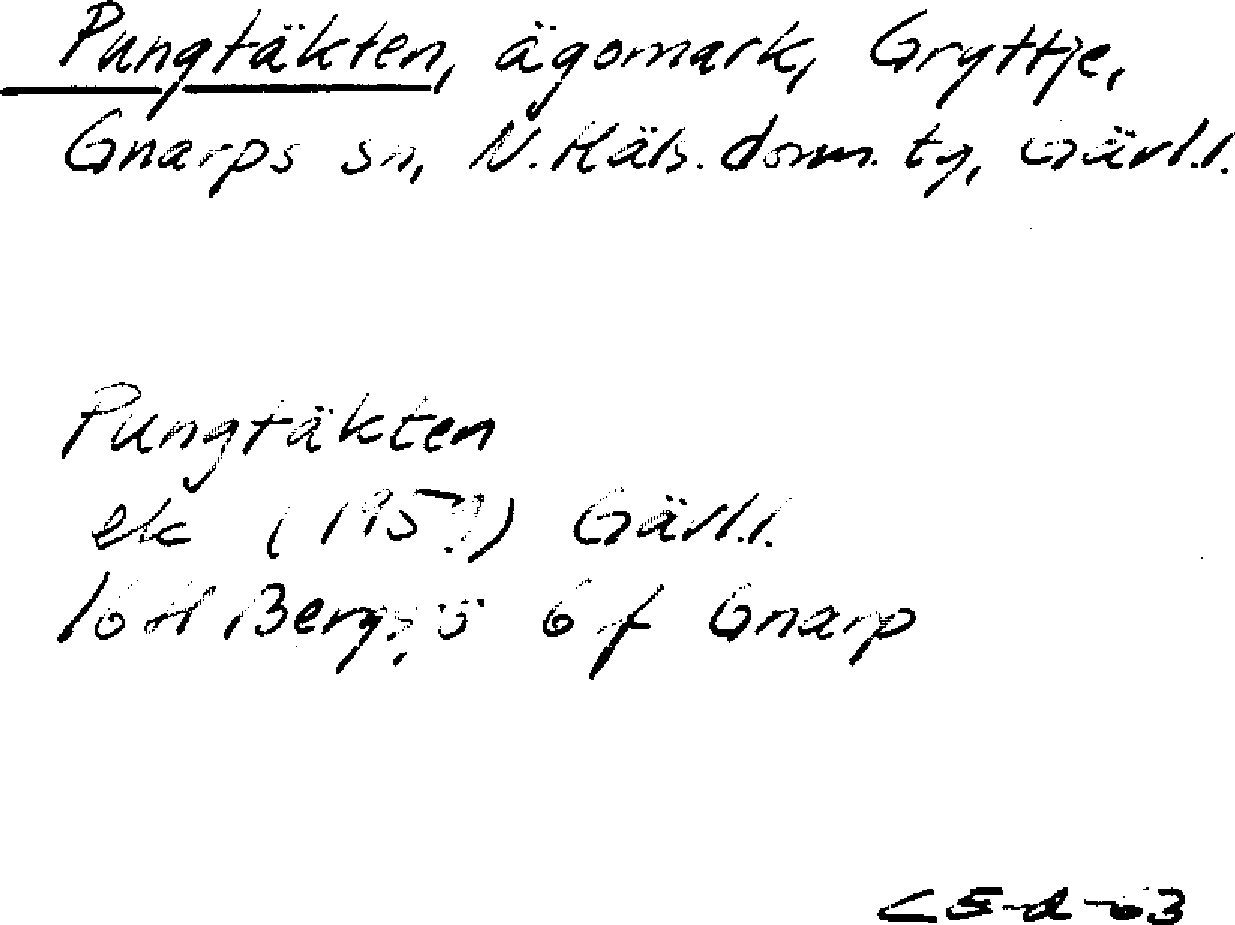 Pungtäkten, ägomark, Gryttje,
Gnarps sn, N. Häls. dom. tg, Gävl.l.
Pungtäkten
ek (195?) Gävl.l.
16H Bergsjö 6 f Gnarp